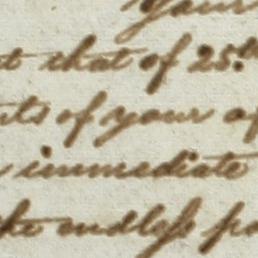 your
that of 25th
of your
immediate
the endless